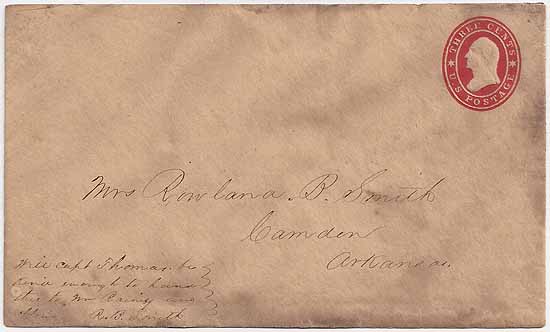 THREE CENTS
U.S. POSTAGE
Mrs Rowland B. Smith
Camden
Arkansas.
Will capt Thomas be
kind enough to hand
this to Mr
R.B. Smith